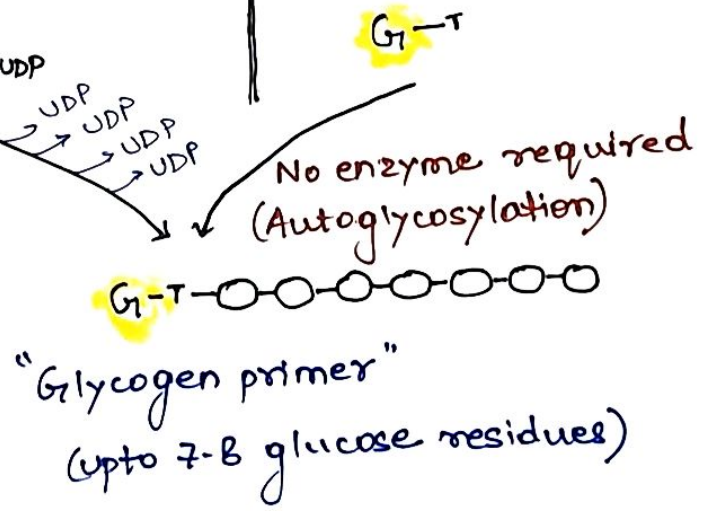 G-T
UDP
UDP
UDP
UDP
UDP
No enzyme required
(Autoglycosylation)
G-T
"Glycogen primer"
(upto 7-8 glucose residues)